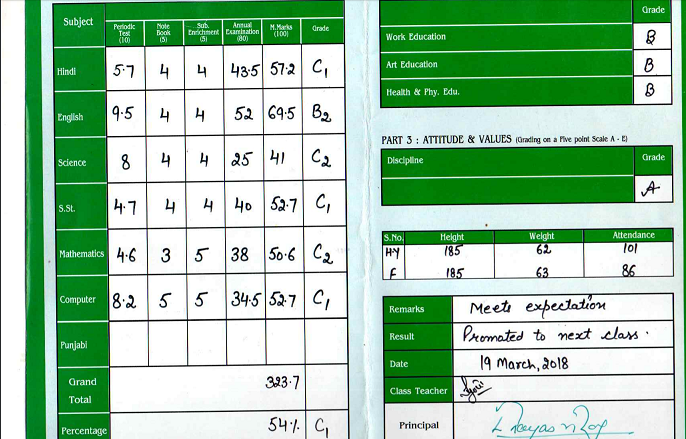 Subject Periodic Test (10) Note Book (5) Sub. Enrichment (5) Annual Examination (80) M.Marks (100) Grade
Hindi 5.7 4 4 43.5 57.2 C1
English 9.5 4 4 52 69.5 B2
Science 8 4 4 25 41 C2
S.St. 4.7 4 4 40 52.7 C1
Mathematics 4.6 3 5 38 50.6 C2
Computer 8.2 5 5 34.5 52.7 C1
Punjabi
Grand Total 323.7
Percentage 54% C1
Grade
Work Education B
Art Education B
Health & Phy. Edu. B
PART 3 : ATTITUDE & VALUES (Grading on a Five point Scale A - E)
Discipline Grade
A
S.No. Height Weight Attendance
H.Y 185 62 101
F 185 63 86
Remarks Meets expectation
Result Promated to next class.
Date 19 March, 2018
Class Teacher
Principal